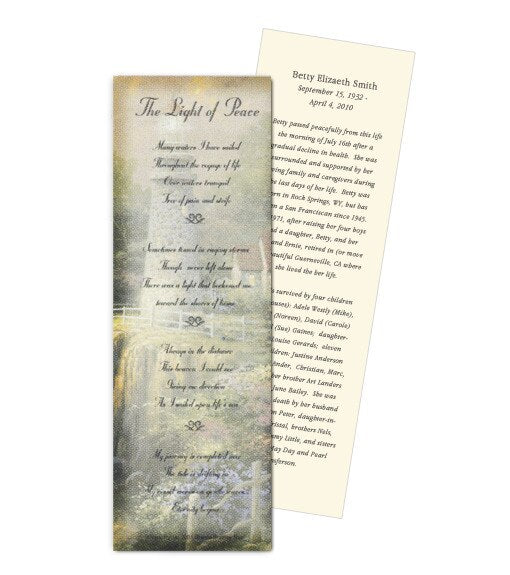 The Light of Peace
Many waters I have sailed
Throughout the voyage of life
Over waters tranquil
Free of pain and strife
Sometimes tossed in raging storms
Though never left alone
There was a light that beckoned me
toward the shores of home
Always in the distance
This beacon I could see
Giving me direction
As I sailed upon life's sea
My journey is complete now
The tide is
Eternity
Betty Elizaeth Smith
September 15, 1932 -
April 4, 2010
Betty passed peacefully from this life
the morning of July 16th after a
gradual decline in health. She was
surrounded and supported by her
ving family and caregivers during
he last days of her life. Betty was
orn in Rock Springs, WY, but has
n a San Franciscan since 1945.
971, after raising her four boys
d a daughter, Betty, and her
and Ernie, retired in (or move
autiful Guerneville, CA where
she lived the her life.
s survived by four children
ouses): Adele Westly (Mike),
(Noreen), David (Carole)
(Sue) Gaines; daughter
ouise Gerards; eleven
dren: Justine Anderson
Ander, Christian, Marc,
er brother Art Landers
June Bailey. She was
death by her husband
on Peter, daughter-in-
ristal, brothers Nels,
my Little, and sisters
May Day and Pearl
mferson.